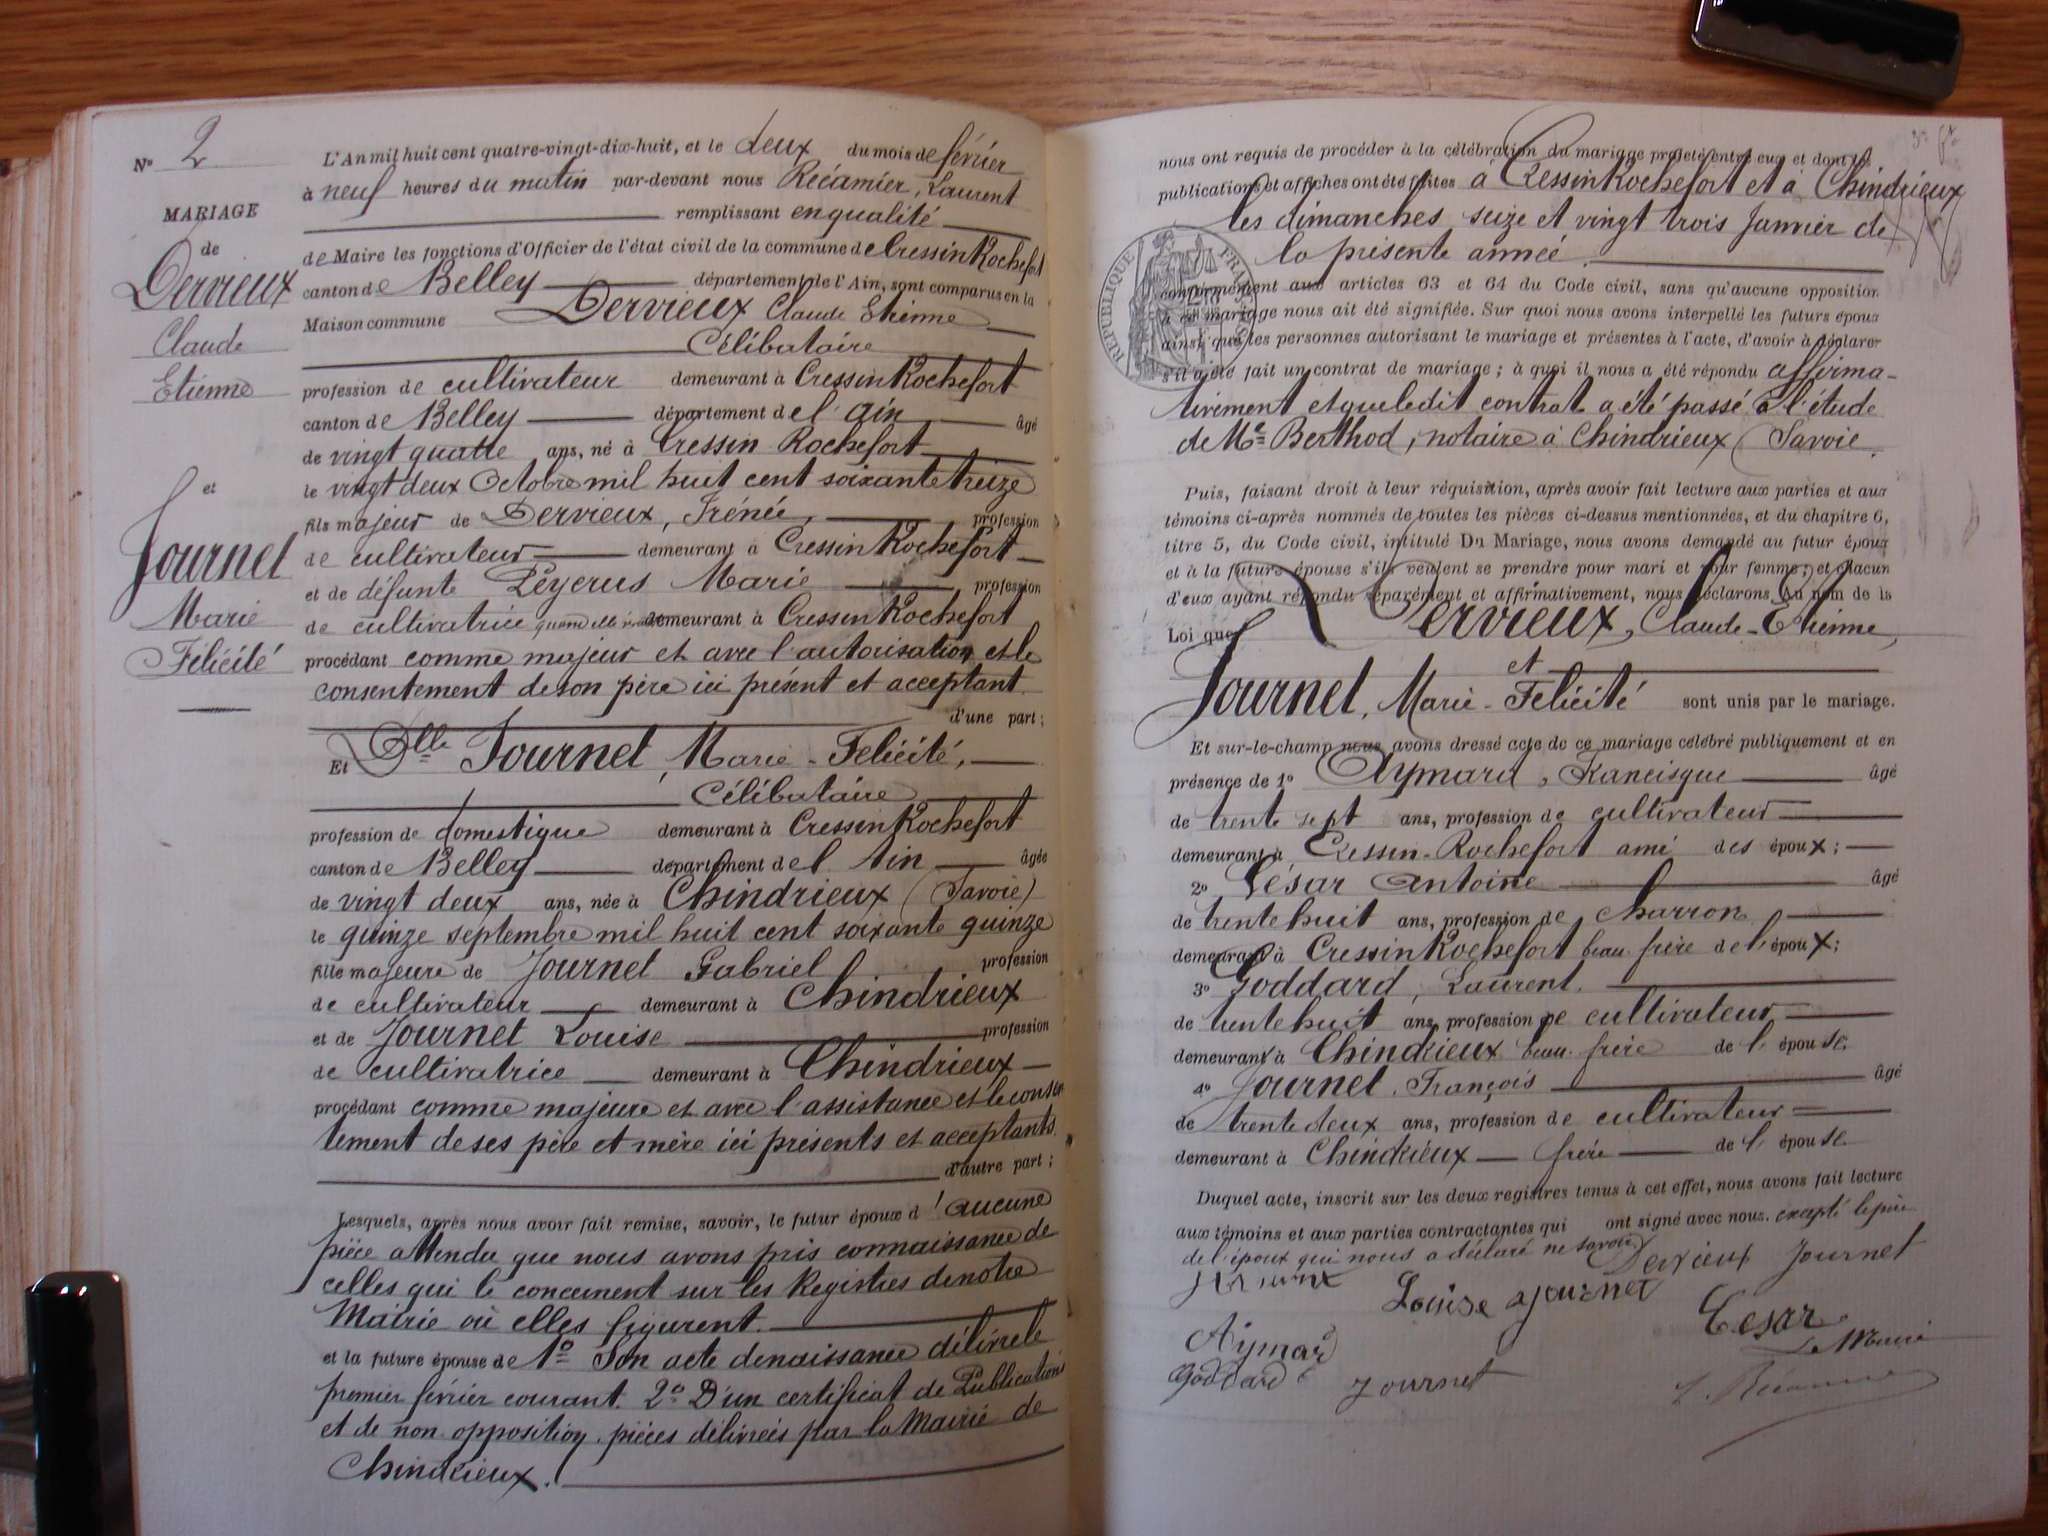 N° 2
MARIAGE
de
Dervieux
Claude
Etienne
et
Journet
Marie
Félicité
L'An mil huit cent quatre-vingt-dix-huit, et le deux du mois de février
à neuf heures du matin par-devant nous Récamier, Laurent
remplissant en qualité
de Maire les fonctions d'Officier de l'état civil de la commune de Cressin Rochefort
canton de Belley département de l'Ain, sont comparus en la
Maison commune Dervieux Claude Etienne
Célibataire
profession de cultivateur demeurant à Cressin Rochefort
canton de Belley département de l'Ain âgé
de vingt quatre ans, né à Cressin Rochefort
le vingt deux Octobre mil huit cent soixante treize
fils majeur de Dervieux, Irénée, profession
de cultivateur demeurant à Cressin Rochefort
et de défunte Peyerus Marie profession
de cultivatrice quand elle vivait demeurant à Cressin Rochefort
procédant comme majeur et avec l'autorisation et le
consentement de son père ici présent et acceptant
d'une part;
Et Dlle Journet, Marie-Félicité,
Célibataire
profession de domestique demeurant à Cressin Rochefort
canton de Belley département de l'Ain âgée
de vingt deux ans, née à Chindrieux (Savoie)
le quinze septembre mil huit cent soixante quinze
fille majeure de Journet Gabriel profession
de cultivateur demeurant à Chindrieux
et de Journet Louise profession
de cultivatrice demeurant à Chindrieux
procédant comme majeure et avec l'assistance et le consen
tement de ses père et mère ici présents et acceptants
d'autre part;
Lesquels, après nous avoir fait remise, savoir, le futur époux d'aucune
pièce attendu que nous avons pris connaissance de
celles qui le concernent sur les Registres de notre
Mairie où elles figurent.
et la future épouse de 1° Son acte de naissance délivré le
premier février courant. 2° D'un certificat de Publications
et de non opposition, pièces délivrées par la Mairie de
Chindrieux.
nous ont requis de procéder à la célébration du mariage projeté entre eux et dont les
publications et affiches ont été faites à Cressin Rochefort et à Chindrieux
les dimanches seize et vingt trois Janvier de
la présente année.
RÉPUBLIQUE FRANÇAISE
conformément aux articles 63 et 64 du Code civil, sans qu'aucune opposition
à ce mariage nous ait été signifiée. Sur quoi nous avons interpellé les futurs époux
ainsi que les personnes autorisant le mariage et présentes à l'acte, d'avoir à déclarer
s'il a été fait un contrat de mariage; à quoi il nous a été répondu affirma-
tivement et que ledit contrat a été passé à l'étude
de Me Berthod, notaire à Chindrieux (Savoie.
Puis, faisant droit à leur réquisition, après avoir fait lecture aux parties et aux
témoins ci-après nommés de toutes les pièces ci-dessus mentionnées, et du chapitre 6,
titre 5, du Code civil, intitulé Du Mariage, nous avons demandé au futur époux
et à la future épouse s'ils veulent se prendre pour mari et pour femme; et chacun
d'eux ayant répondu séparément et affirmativement, nous déclarons Au nom de la
Loi que Dervieux, Claude-Etienne,
et
Journet, Marie-Félicité sont unis par le mariage.
Et sur-le-champ nous avons dressé acte de ce mariage célébré publiquement et en
présence de 1° Aymard, Francisque âgé
de trente sept ans, profession de cultivateur
demeurant à Cressin-Rochefort ami des époux;
2° César Antoine âgé
de trente huit ans, profession de charron
demeurant à Cressin Rochefort beau-frère de l'époux;
3° Goddard, Laurent.
de trente huit ans, profession de cultivateur
demeurant à Chindrieux beau-frère de l'épouse.
4° Journet, François âgé
de trente deux ans, profession de cultivateur
demeurant à Chindrieux frère de l'épouse
Duquel acte, inscrit sur les deux registres tenus à cet effet, nous avons fait lecture
aux témoins et aux parties contractantes qui ont signé avec nous. excepté le père
de l'époux qui nous a déclaré ne savoir Dervieux Journet
Louise Journet
Cesar
Aymard
Le Maire
Goddard Journet
L. Récamier